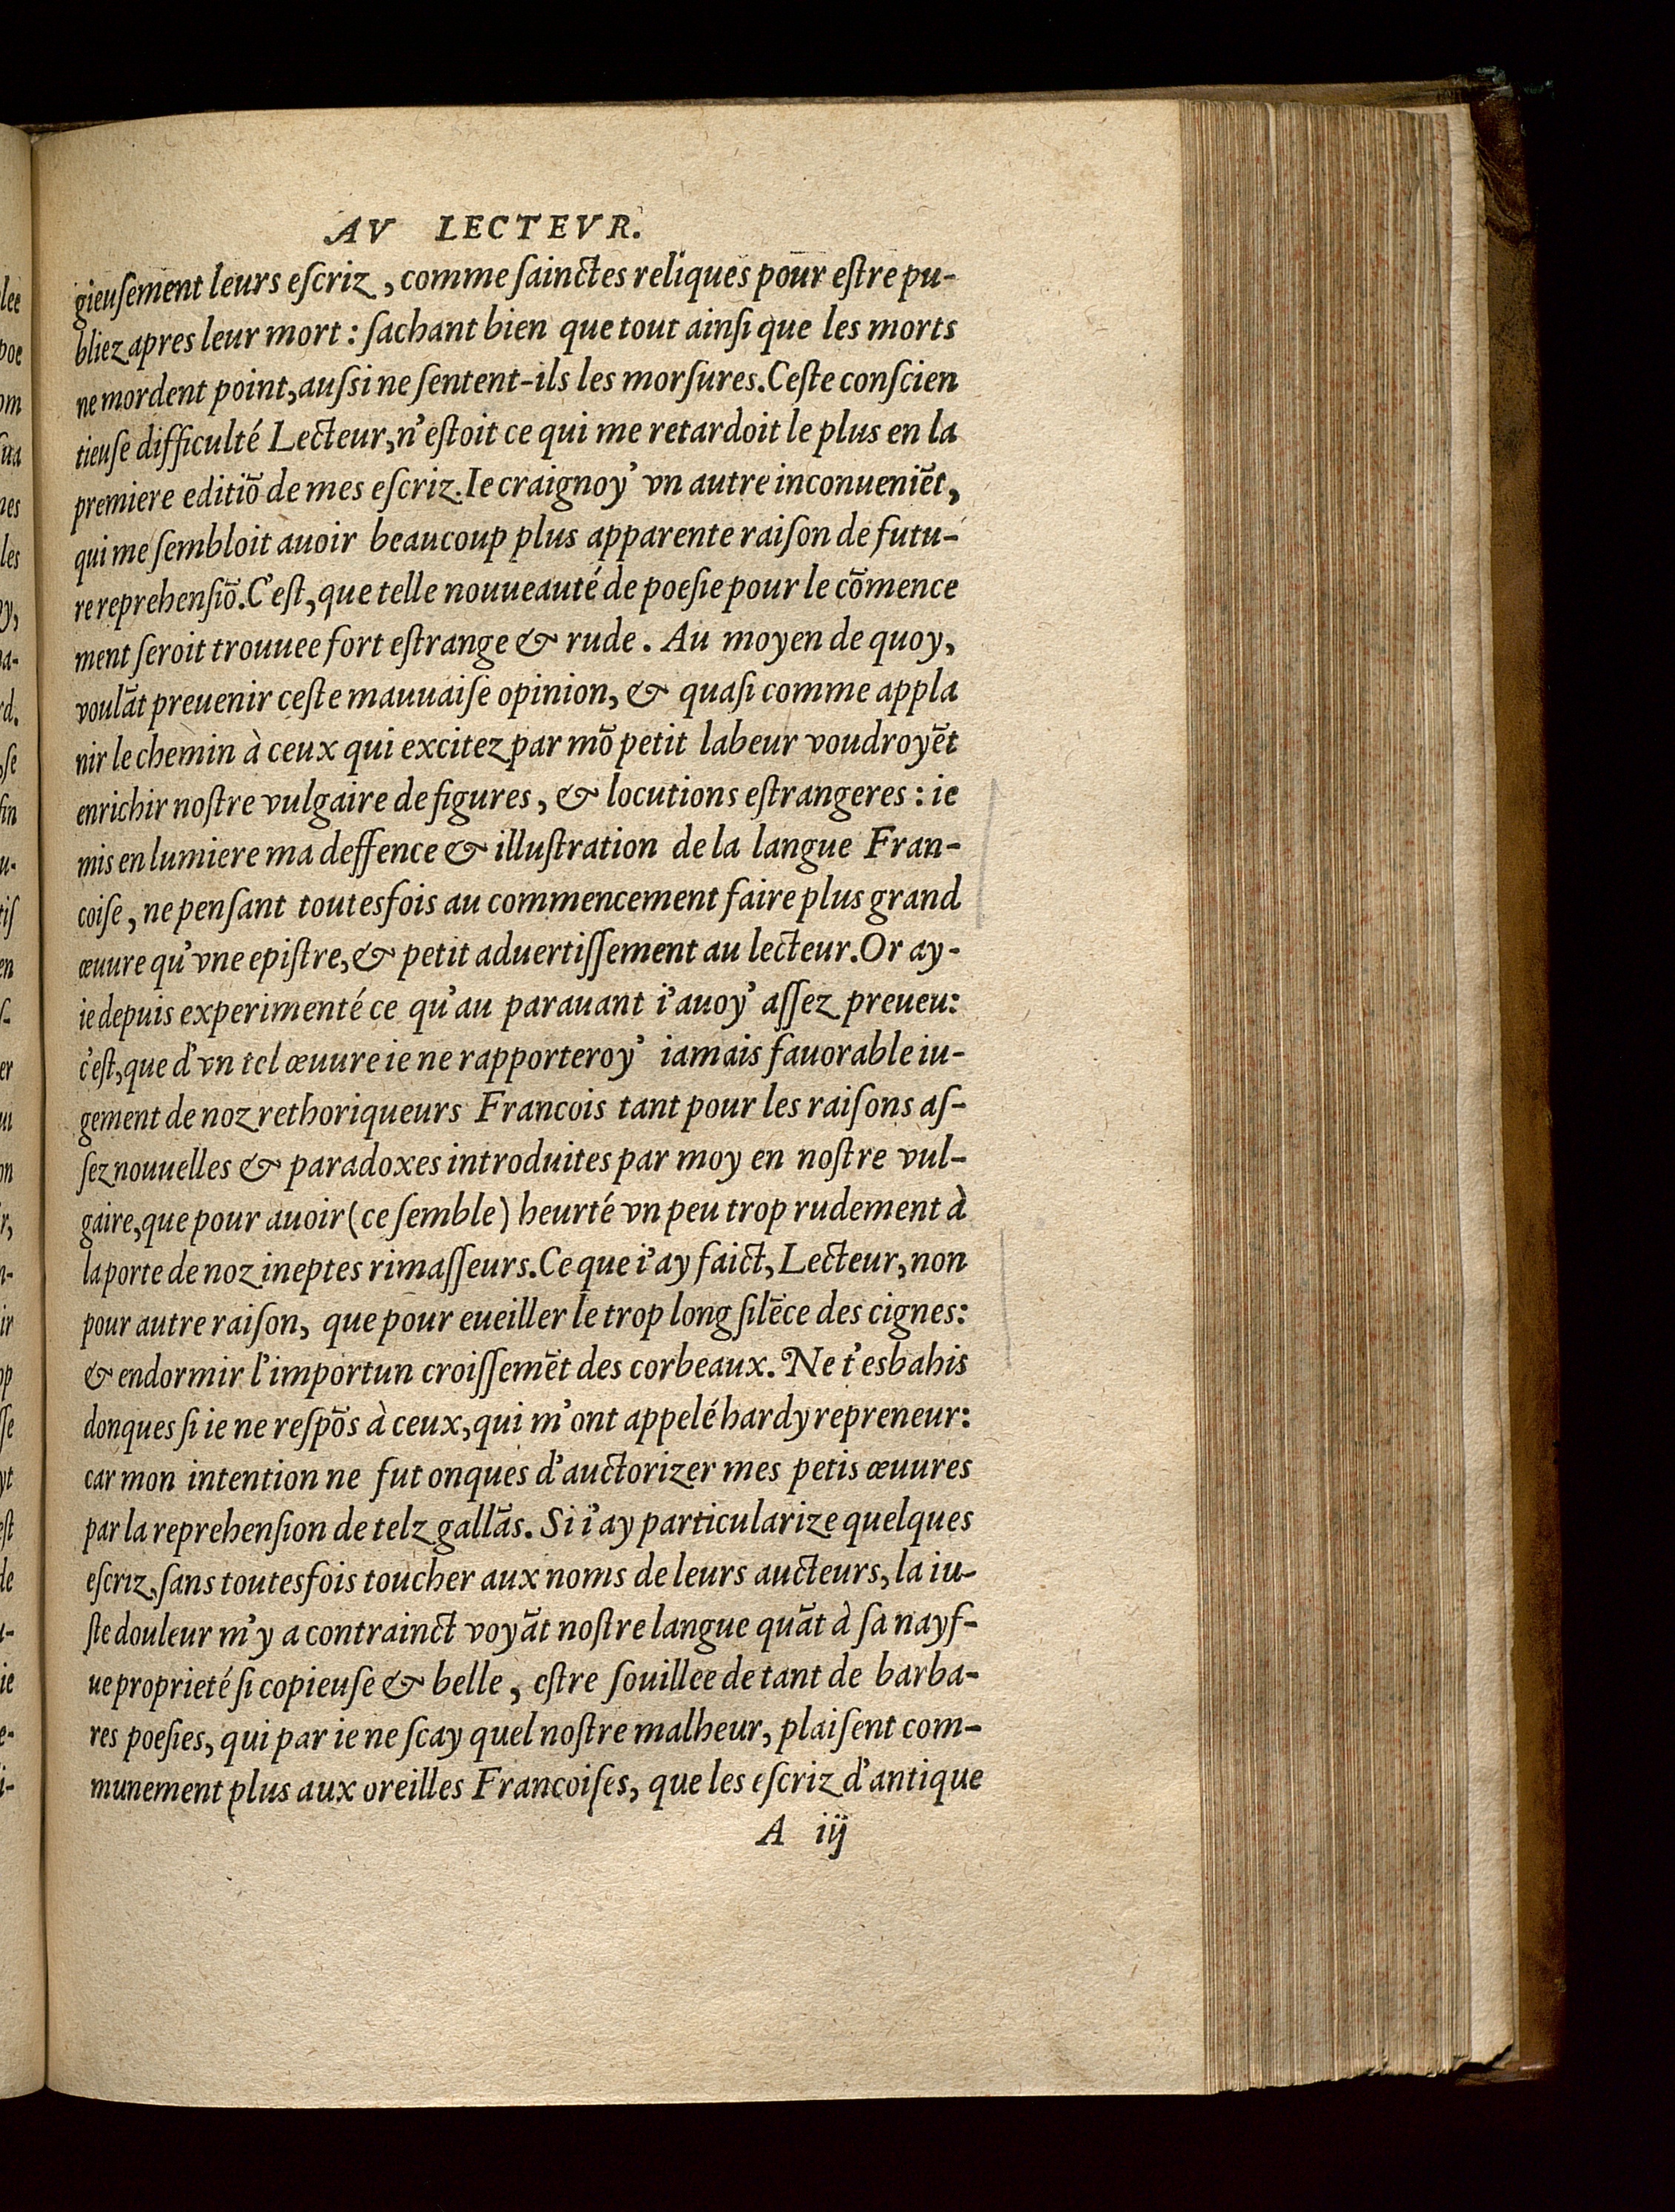 AV LECTEVR.
gieuſement leurs eſcriz, comme ſainctes reliques pour eſtre pu-
bliez apres leur mort : ſachant bien que tout ainſi que les morts
ne mordent point, auſsi ne ſentent-ils les morſures. Ceſte conſcien
tieuſe difficulté Lecteur, n'eſtoit ce qui me retardoit le plus en la
premiere editiõ de mes eſcriz. Ie craignoy' vn autre inconueniẽt,
qui me ſembloit auoir beaucoup plus apparente raiſon de futu-
re reprehenſiõ. C'eſt, que telle nouueauté de poeſie pour le cõmence
ment ſeroit trouuee fort eſtrange & rude. Au moyen de quoy,
voulãt preuenir ceſte mauuaiſe opinion, & quaſi comme appla
nir le chemin à ceux qui excitez par mõ petit labeur voudroyẽt
enrichir noſtre vulgaire de figures, & locutions eſtrangeres : ie
mis en lumiere ma deffence & illuſtration de la langue Fran-
coiſe, ne penſant toutesfois au commencement faire plus grand
œuure qu'vne epiſtre, & petit aduertiſſement au lecteur. Or ay-
ie depuis experimenté ce qu'au parauant i'auoy' aſſez preueu:
c'eſt, que d'vn tel œuure ie ne rapporteroy' iamais fauorable iu-
gement de noz rethoriqueurs Francois tant pour les raiſons aſ-
ſez nouuelles & paradoxes introduites par moy en noſtre vul-
gaire, que pour auoir (ce ſemble) heurté vn peu trop rudement à
la porte de noz ineptes rimaſſeurs. Ce que i'ay faict, Lecteur, non
pour autre raiſon, que pour eueiller le trop long ſilẽce des cignes:
& endormir l'importun croiſſemẽt des corbeaux. Ne t'esbahis
donques ſi ie ne reſpõs à ceux, qui m'ont appelé hardy repreneur:
car mon intention ne fut onques d'auctorizer mes petis œuures
par la reprehenſion de telz gallãs. Si i'ay particularize quelques
eſcriz, ſans toutesfois toucher aux noms de leurs aucteurs, la iu-
ſte douleur m'y a contrainct voyãt noſtre langue quãt à ſa nayf-
ue proprieté ſi copieuſe & belle, eſtre ſouillee de tant de barba-
res poeſies, qui par ie ne ſcay quel noſtre malheur, plaiſent com-
munement plus aux oreilles Francoiſes, que les eſcriz d'antique
A iij